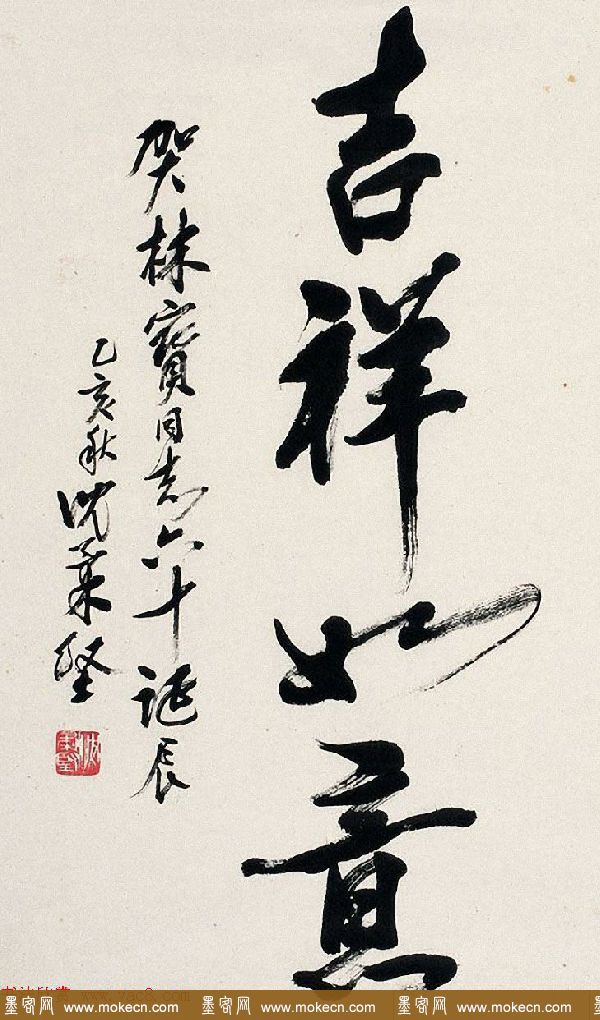 吉祥如意
贺林宝同志六十诞辰
乙亥秋沈柔坚
墨客网 www.mokecn.com 墨客网 www.mokecn.com 墨客网 www.mokecn.com